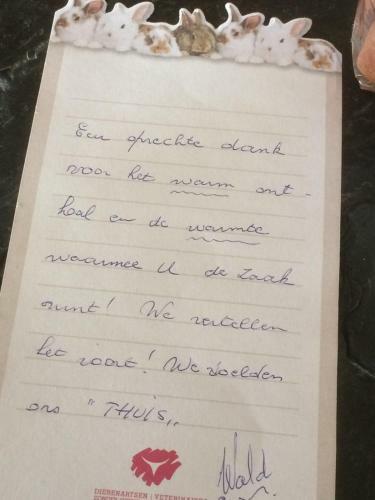 Een oprechte dank
voor het warm ont-
haal en de warmte
waarmee U de zaak
runt! We vertellen
het voort! We voelden
ons "THUIS„
Wald
DIERENARTSEN | VETERINAIRES